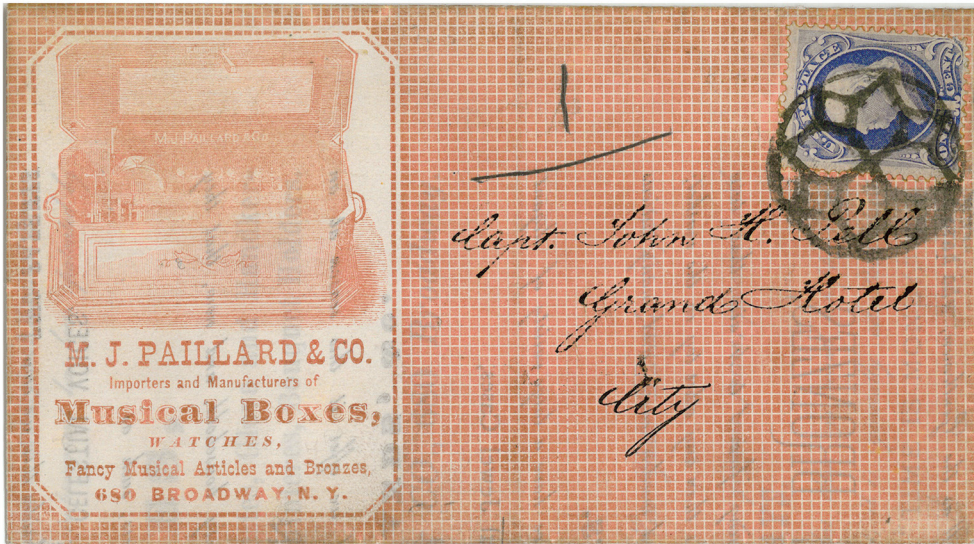 M. J. PAILLARD & CO.
M. J. PAILLARD & CO.
Importers and Manufacturers of
Musical Boxes,
WATCHES,
Fancy Musical Articles and Bronzes,
680 BROADWAY, N. Y.
1
Capt. John H. Pell
Grand Hotel
City
POSTAGE